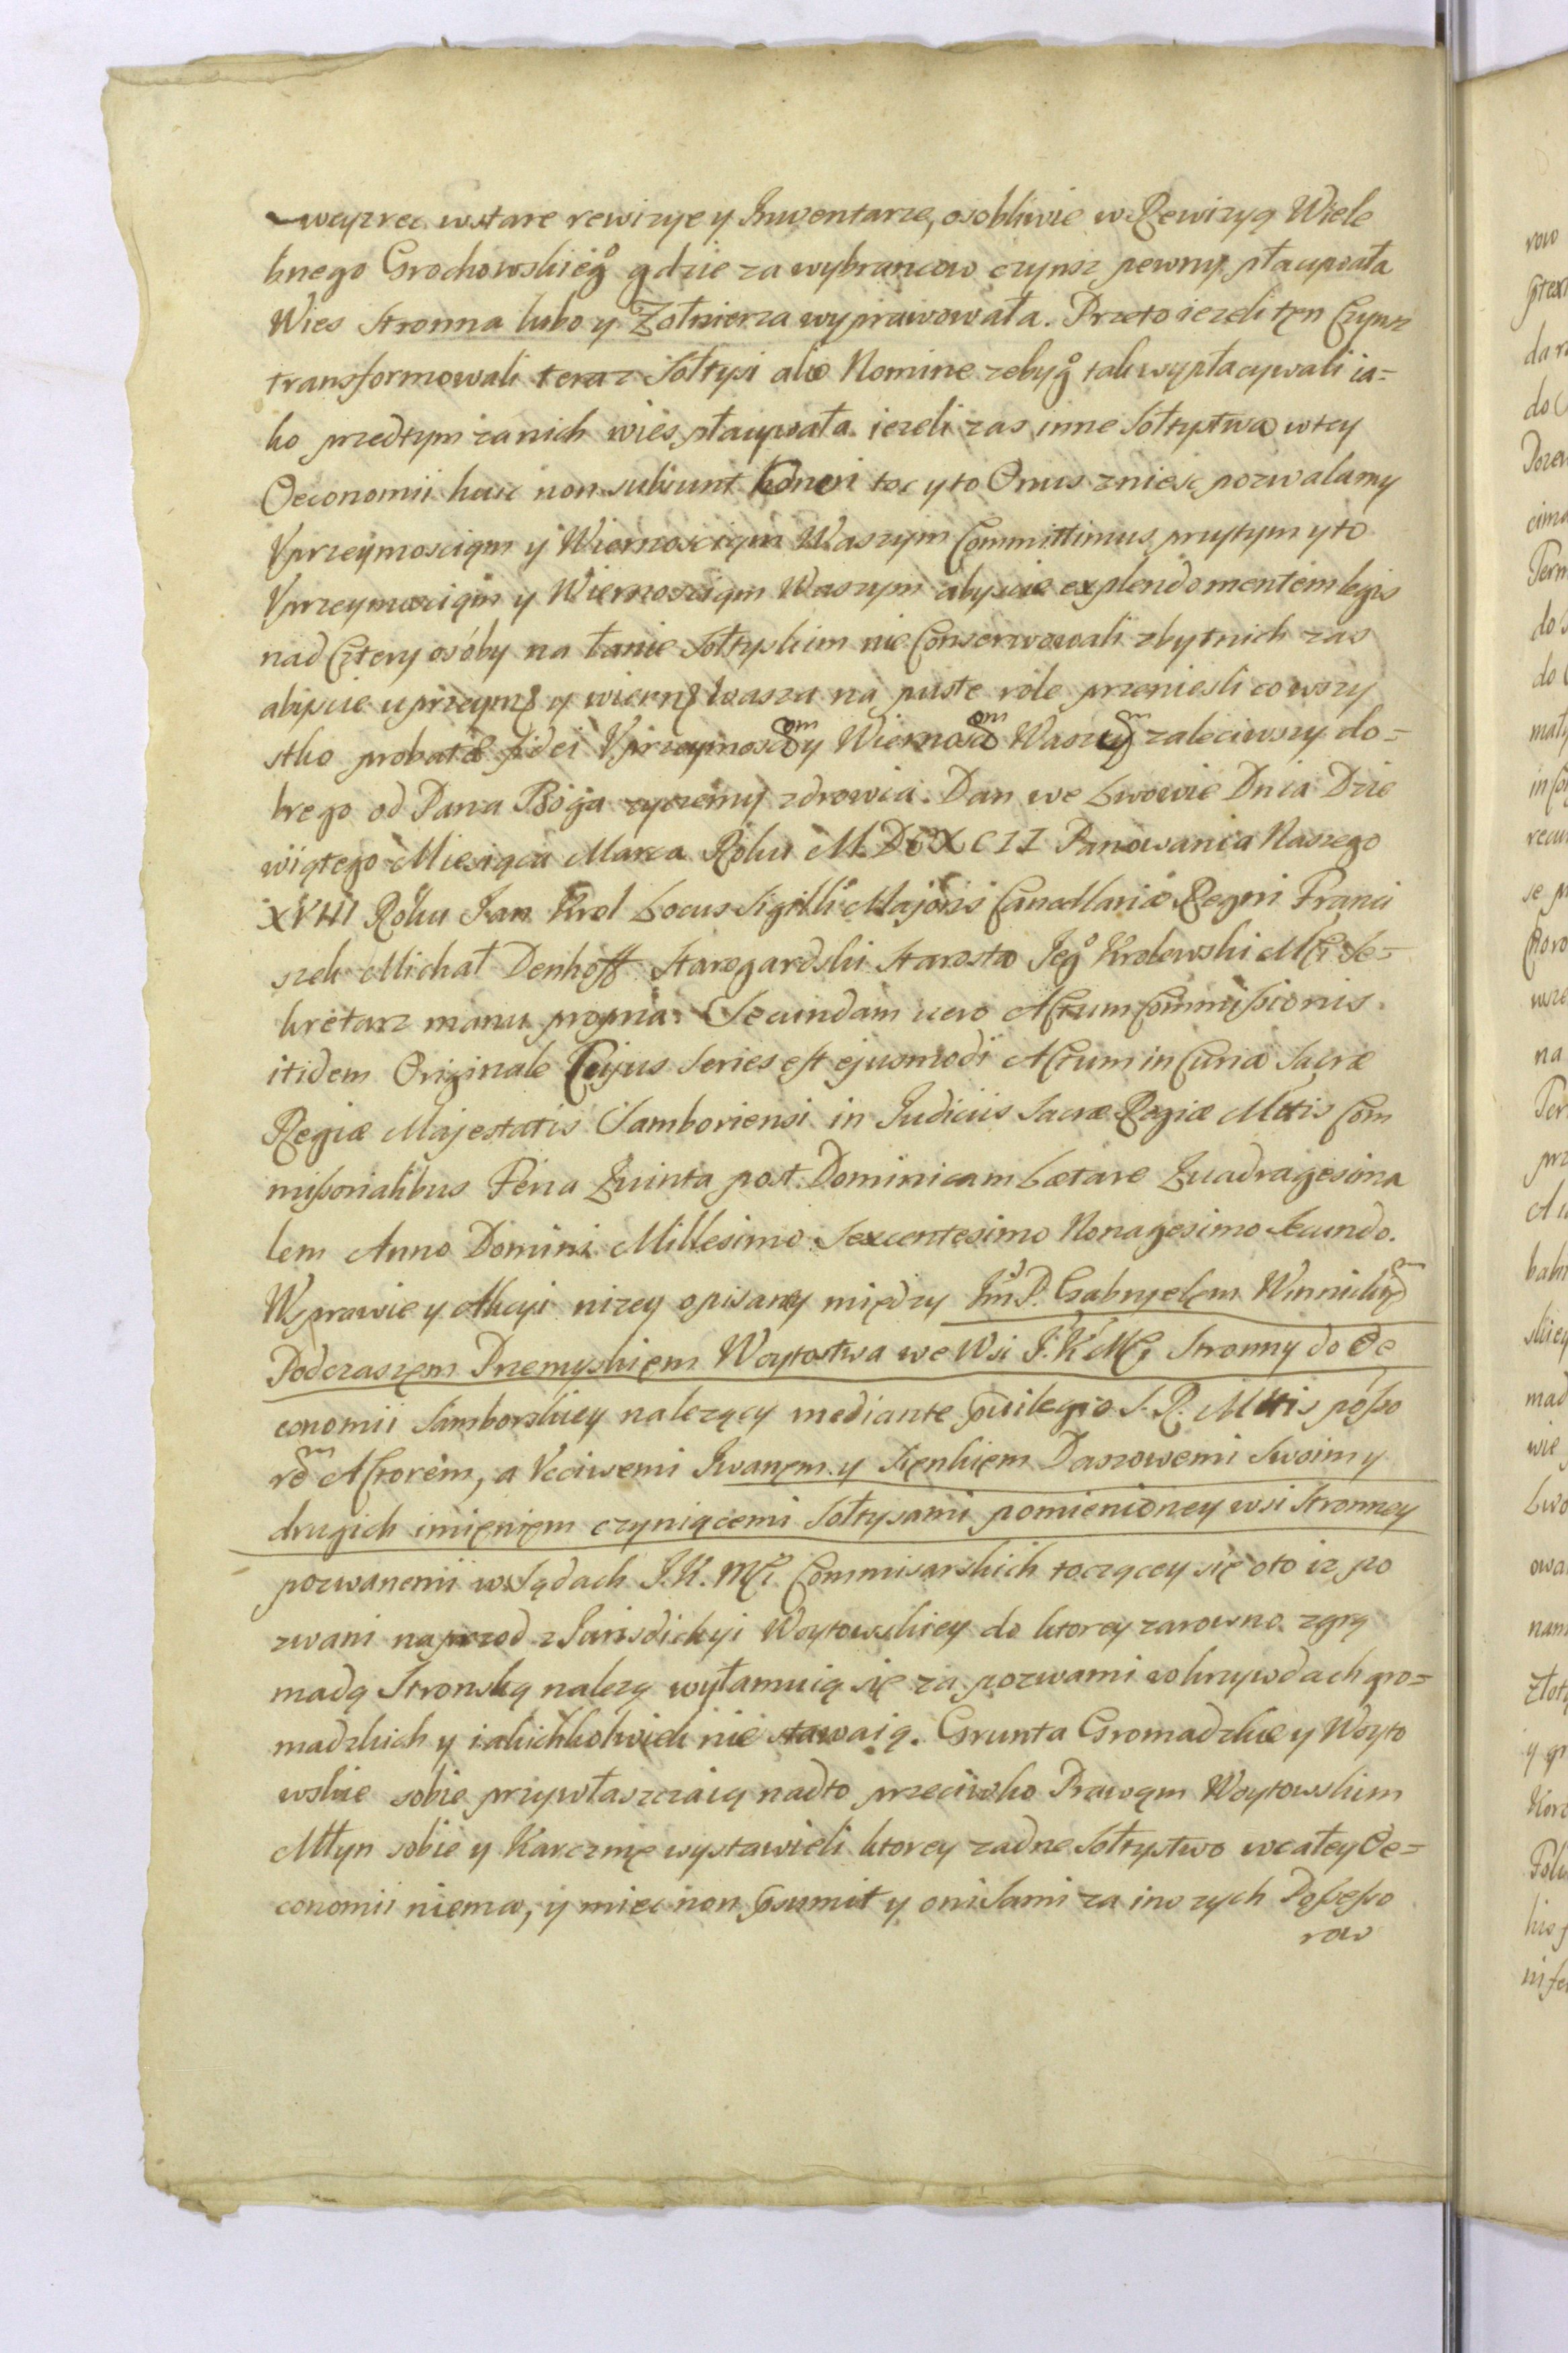 weyzrec wstare rewizye y Inwentarze, osobliwie w Rewizyą Wiele
bnego Grochowskieg° gdzie za wybrancow czynsz pewny płacywała
Wies Stronna lubo y Zołnierza wyprawowała. Przeto iezeli ten Czynsz
transformowali teraz Sołtysi alio Nomine zeby g° tak wypłacywali ia=
ko przedtym zanich wies płacywała. iezeli zas inne Sołtystwa wtey
Oeconomii huic non subsunt Oneri toc y to Onus zniesc pozwalamy
Vprzeymosciąm y Wiernosciąm Waszym Committimus przytym y to
Vprzeymosciąm y Wiernosciąm Waszym abyscie explendo mentem legis
nad Cztery osóby na łanie Sołtyskim nie Conserwowali zbytnich zas
abyscie uprzeym: y wiern: wasza na puste role przeniesli co wszy
stko probatæ fidei Vprzeymoscom y Wiernoscom Waszym zaleciwszy do=
brego od Pana Boga zyczemy zdrowia. Dan we Lwowie Dnia Dzie
wiątego Miesiąca Marca Roku M.DCXCII Panowania Naszego
XVIII Roku Jan Krol Locus Sigilli Majoris Cancellariæ Regni Franci
szek Michał Denhoff Starogardski Starosta Jeg° Krolewski Mci Se=
kretarz manu propria. Secundam vero Actum Commissionis
itidem Originale Cujus Series est ejusmodi Actum in Curia Sacræ
Regiæ Majestatis Samboriensi in Judiciis Sacræ Regiæ Mttis Com
missorialibus Feria Quinta post Dominicam Lætare Quadragesima
lem Anno Domini Millesimo Sexcentesimo Nonagesimo Secundo.
W sprawie y Akcyi nizey opisany między Jm P. Gabryelem Winnickim
Podczaszem Przemyskiem Woytostwa we Wsi J.K.Mci Stronny do Oe
conomii Samborskiey nalezący mediante privilegio S. R. Mttis posso
rem Actorem, a Vcciwemi Iwanęm y Sienkiem Daszowemi Swoim y
drugich imięniem czyniącemi Sołtysami pomienioney wsi Stronney
pozwanemi w Sądach J.K. Mci Commisarskich toczącey się oto iz po
zwani naprzod z Jurisdickyi Woytowskiey do ktorey zarowno zgrą
madą Stronską nalezą wyłamuią się za pozwami o krzywdach gro=
madzkich y iakichkolwiek nie stawaią. Grunta Gromadzkie y Woyto
wskie sobie przywłaszczaią nadto przeciwko Prawąm Woytowskim
Młyn sobie y Karczmę wystawieli ktorey zadne Sołtystwo wcałey Oe=
conomii niema, y miec non præsumit y oni Sami za inszych Possesso
row